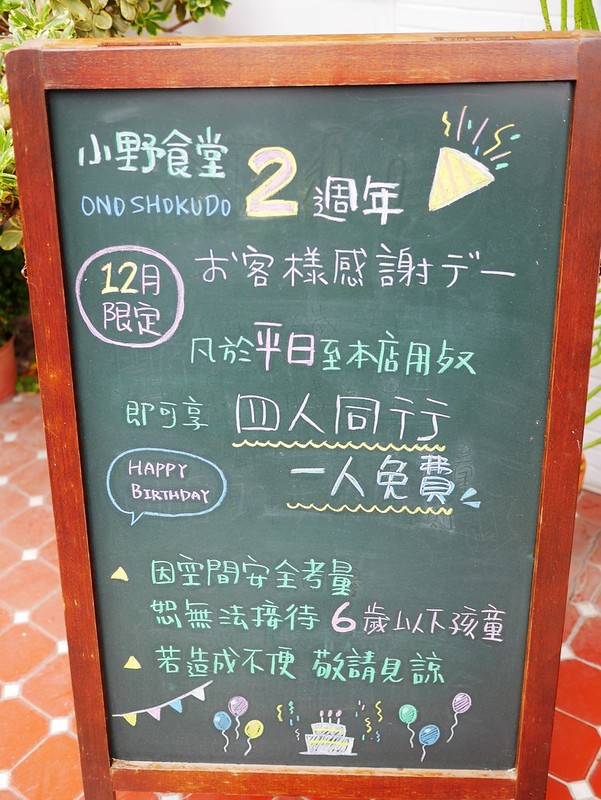 小野食堂
ONO SHOKUDO
2週年
12月
限定
お客様感謝デー
凡於平日至本店用餐
即可享 四人同行
一人免費
HAPPY
BIRTHDAY
因空間安全考量
恕無法接待 6歲以下孩童
若造成不便 敬請見諒